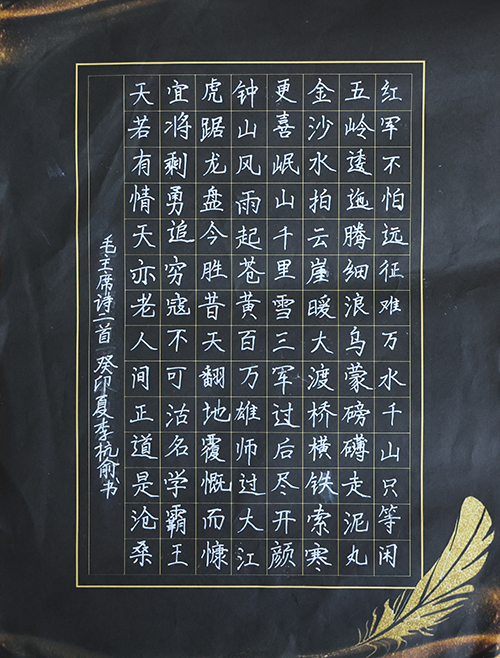 红军不怕远征难万水千山只等闲
五岭逶迤腾细浪乌蒙磅礴走泥丸
金沙水拍云崖暖大渡桥横铁索寒
更喜岷山千里雪三军过后尽开颜
钟山风雨起苍黄百万雄师过大江
虎踞龙盘今胜昔天翻地覆慨而慷
宜将剩勇追穷寇不可沽名学霸王
天若有情天亦老人间正道是沧桑
毛主席诗二首 癸卯夏李杭俞书